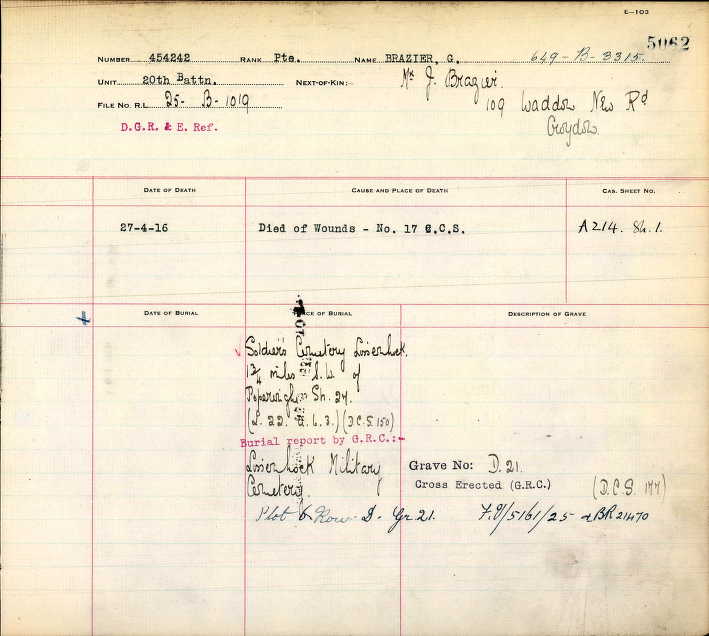 E—103
5062
NUMBER 454242 RANK Pte. NAME BRAZIER, G. 649-B-3315.
UNIT 20th Battn. NEXT-OF-KIN:- Mr J. Brazier.
109 Waddon New Rd
Croydon.
FILE NO. R.L. 25- B-1019
D.G.R. & E. Ref.
DATE OF DEATH CAUSE AND PLACE OF DEATH CAS. SHEET NO.
27-4-16 Died of Wounds - No. 17 C.C.S. A214. Sh.1.
DATE OF BURIAL PLACE OF BURIAL DESCRIPTION OF GRAVE
Soldier's Cemetery Lissenhoek.
1¾ miles S.W. of
Poperinghe Sh. 27.
(L. 22. d. 6.3.) (D.C.S. 150)
Burial report by G.R.C.:-
Lissenhoek Military
Cemetery.
Grave No: D. 21.
Cross Erected (G.R.C.) (D.C.S. 177)
Plot 6 Row D. Gr 21. BR 21470